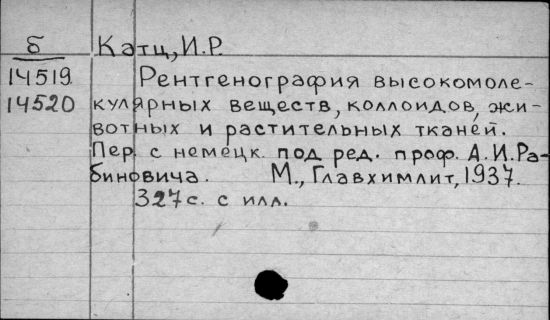 б Катц, И.Р.
14519 Рентгенография высокомоле-
14520 кулярных веществ, коллоидов, жи-
вотных и растительных тканей.
Пер. с немецк. под ред. проф. А.И.Ра-
биновича. М., Главхимлит, 1937.
327 с. с илл.